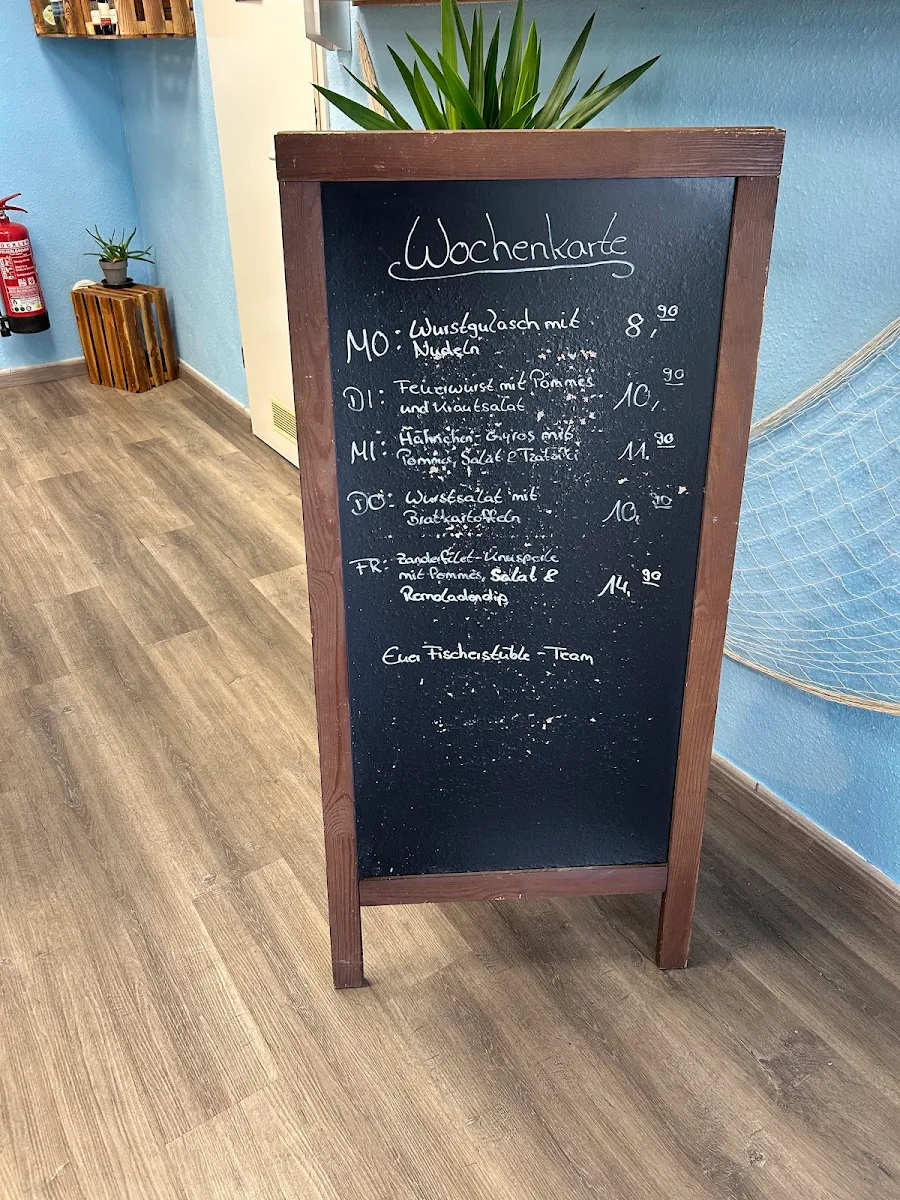 Wochenkarte
MO: Wurstgulasch mit 8,90
Nudeln
DI: Feuerwurst mit Pommes 10,90
und Krautsalat
MI: Hähnchen-Gyros mit 11.90
Pommes, Salat & Tzatziki
DO: Wurstsalat mit 10,90
Bratkartoffeln
FR: Zanderfilet-Knusperle
mit Pommes, Salat & 14,90
Remoladendip
Euer Fischerstüble - Team